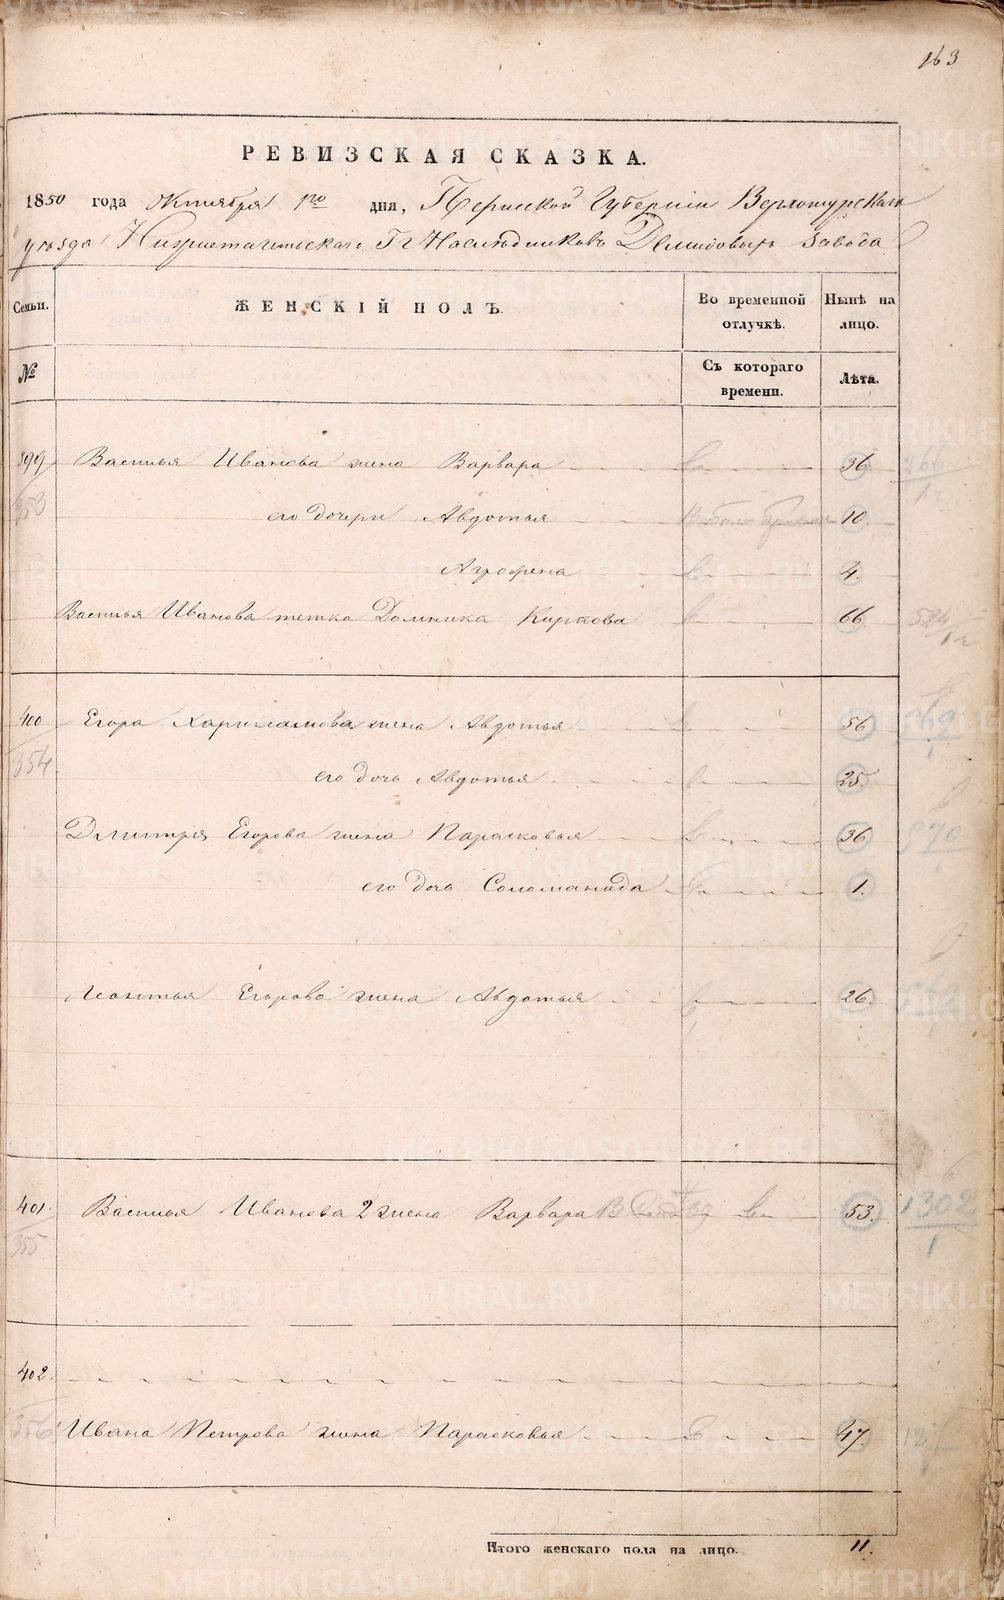 163
РЕВИЗСКАЯ СКАЗКА.
1850 года Октября дня, Пермской Губернии Верхотурскаго
уезда Нижнетагильскаго Гг Наследниковъ Демидовыхъ завода
Семьи. ЖЕНСКІЙ ПОЛЪ. Во временной отлучкѣ. Нынѣ на лицо.
№ Съ котораго времени. Лѣта.
399 Василья Иванова жена Варвара 36. 266
353 его дочери Авдотья 10.
Агрофена 4.
Василья Иванова тетка Домника Карпова 66.
400 Егора Харламова жена Авдотья 56
354 его дочь Авдотья 25.
Дмитрія Егорова жена Парасковья 36 570
его дочь Соломанида 1.
Леонтья Егорова жена Авдотья 26.
401. Василья Иванова 2 жена Варвара 53. 1302
355 1
402.
356 Ивана Петрова жена Парасковья 47.
Итого женскаго пола на лицо. 11.
METRIKI.GASO-URAL.RU